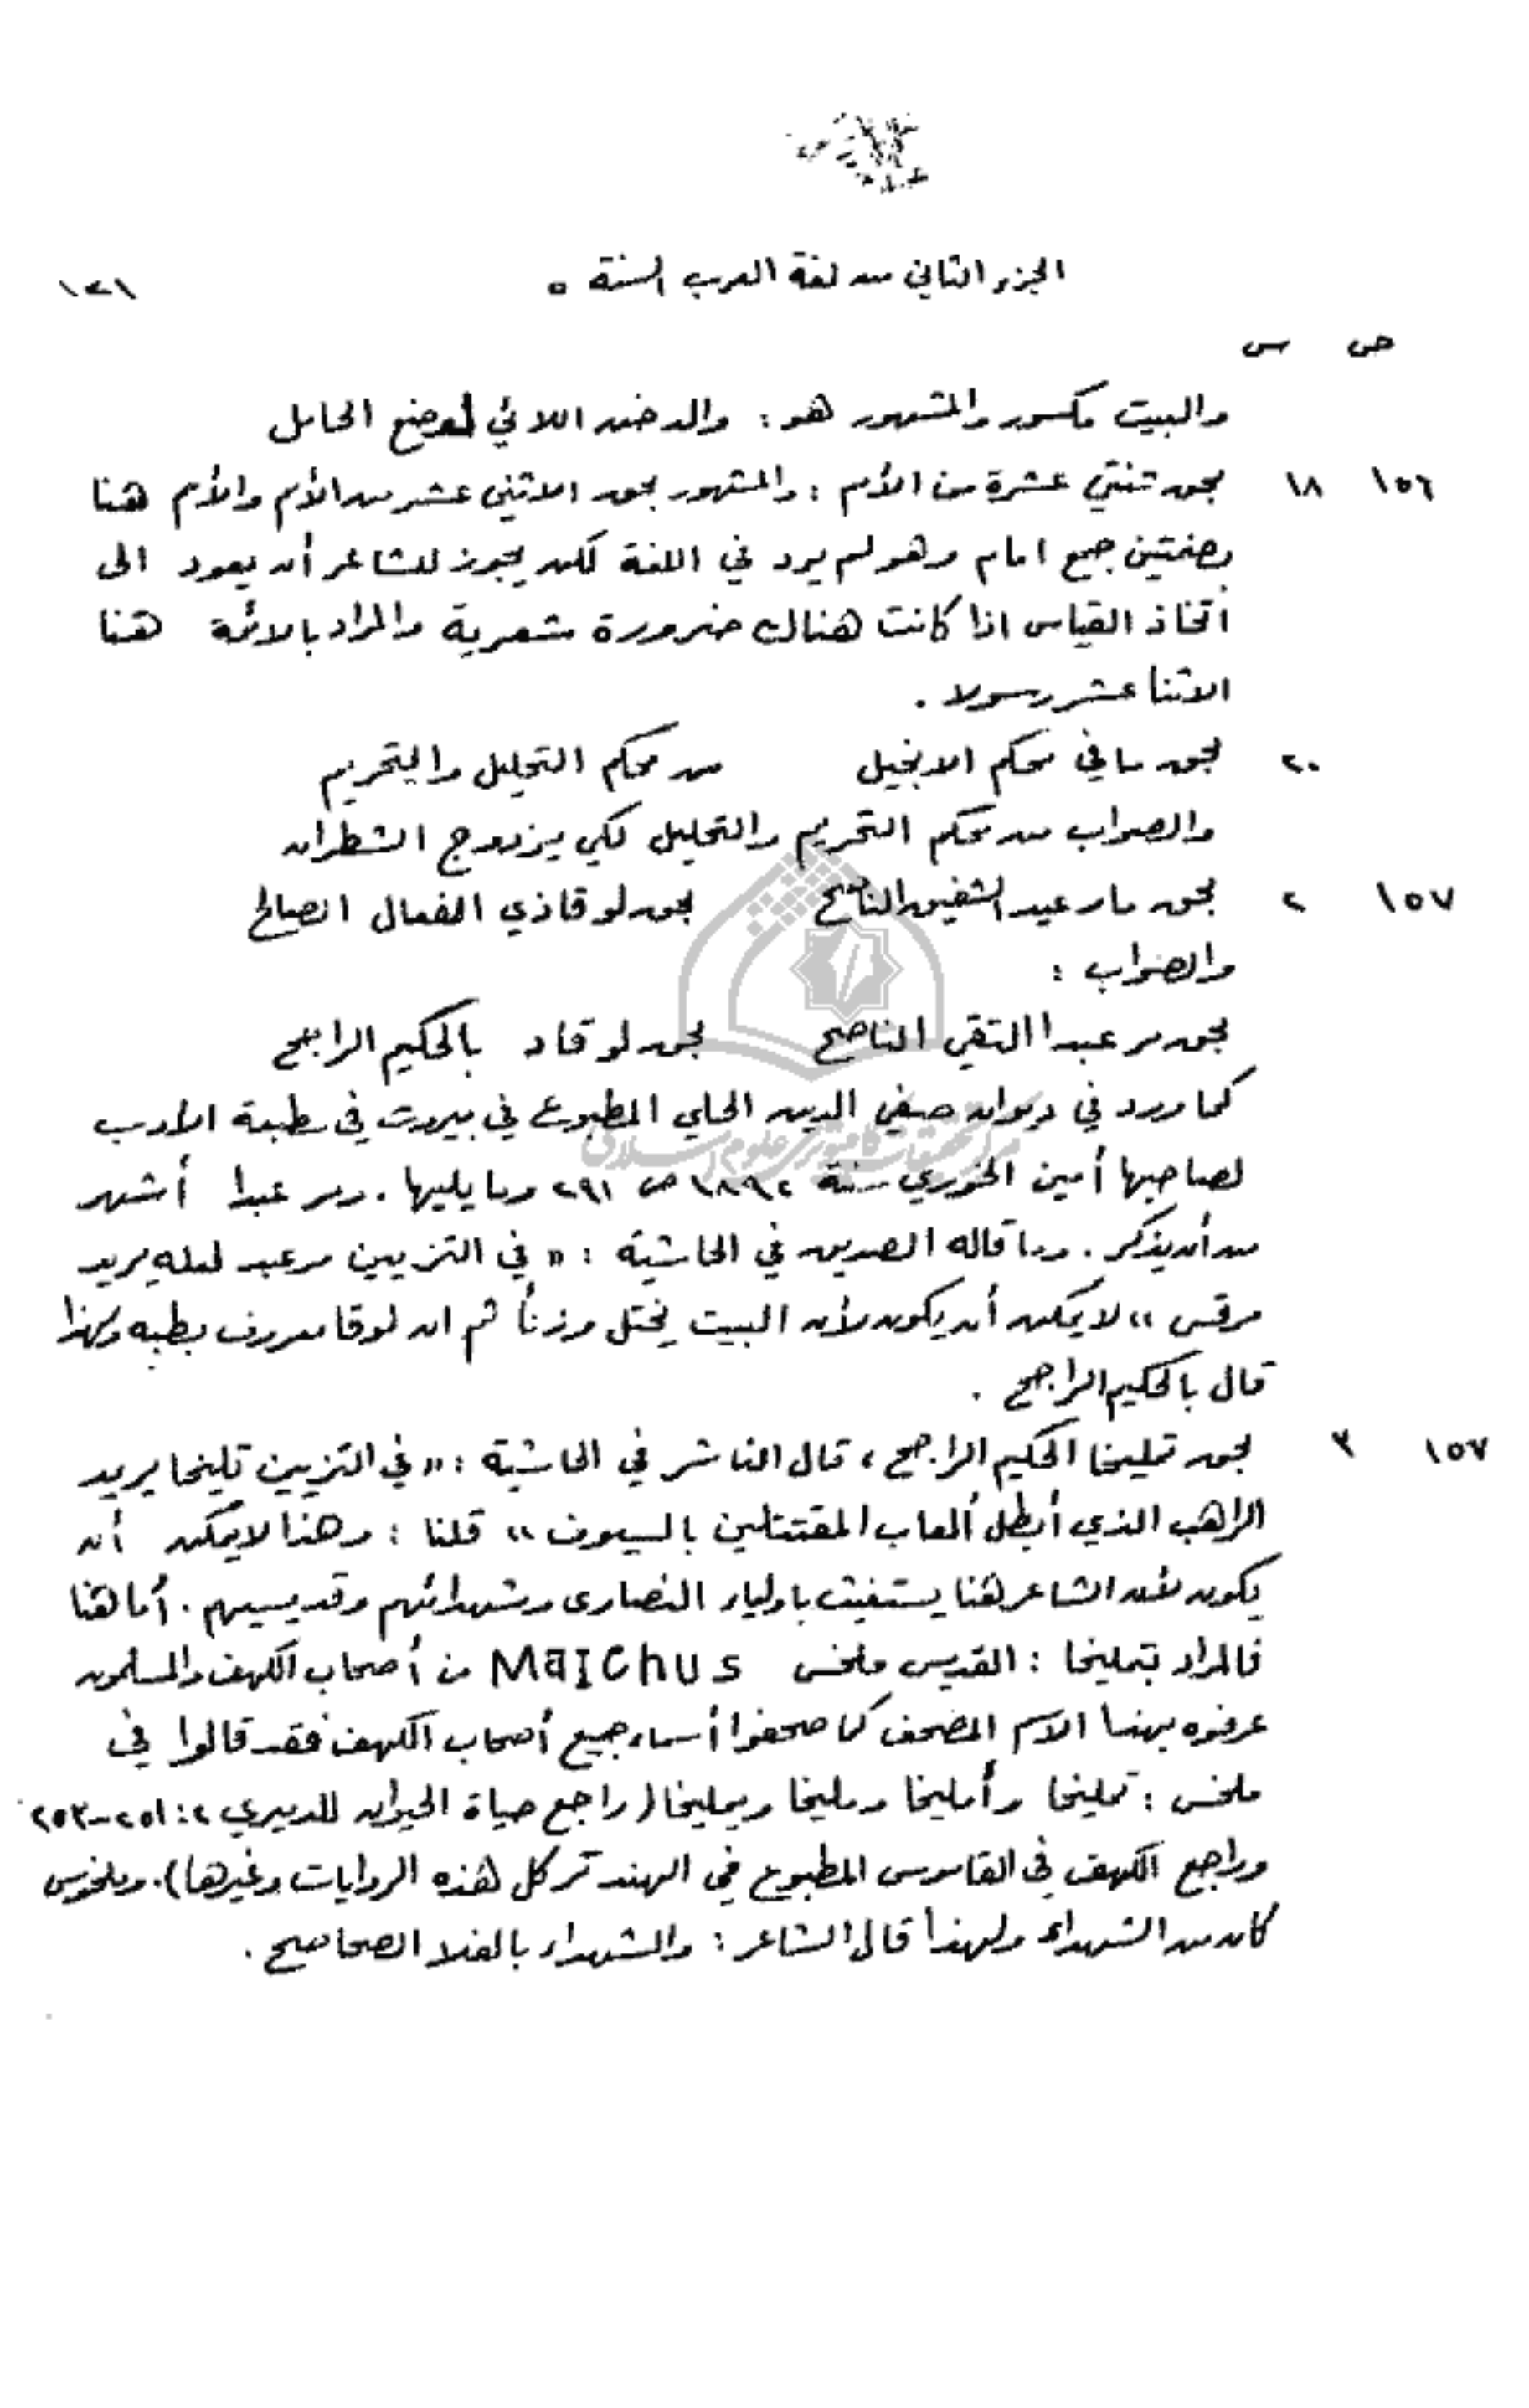 الجزء الثاني من لغة العرب السنة ٥ ١٢١
ص س
والبيت مكسور والمشهور هو : والدخن اللائي لوضع الحامل
١٥٦ ١٨ بحق ثنتي عشرة من الأمم : والمشهور بحق الاثني عشر من الأمم والأمم هنا
بضمتين جمع امام وهو لم يرد في اللغة لكن يجوز للشاعر أن يعود الى
اتخاذ القياس اذا كانت هناك ضرورة شعرية والمراد بالائمة هنا
الاثنا عشر رسولا .
٢٠ بحق ما في محكم الانجيل من محكم التحليل والتحريم
والصواب من محكم التحريم والتحليل لكي يزدوج الشطران
١٥٧ ٢ بحق مار عيد الشفيق الناصح بحق لوقا ذي الفعال الصالح
والصواب :
بحق مر عبدا التقي الناصح بحق لوقاد بالحكيم الراجح
كما ورد في ديوان صفي الدين الحلي المطبوع في بيروت في مطبعة الأدب
لصاحبها أمين الخوري سنة ١٨٩٢ ص ٢٩١ وما يليها . ومر عبدا أشهر
من أن يذكر . وما قاله الصديق في الحاشية : « في التزيين مر عبد لعله يريد
مرقس » لا يمكن أن يكون لأن البيت يختل وزناً ثم ان لوقا معروف بطبه ولهذا
قال بالحكيم الراجح .
١٥٧ ٣ بحق تمليخا الحكيم الراجح ، قال الناشر في الحاشية : « في التزيين تليخا يريد
الراهب الذي أبطل ألعاب المقتتلين بالسيوف » قلنا : وهذا لا يمكن أن
يكون لأن الشاعر هنا يستغيث باولياء النصارى وشهدائهم وقديسيهم . أما هنا
فالمراد بتمليخا : القديس ملخس MaIChus من أصحاب الكهف والمسلمون
عرفوه بهذا الاسم المصحف كما صحفوا أسماء جميع أصحاب الكهف فقد قالوا في
ملخس : تمليخا وأمليخا ومليخا ويمليخا ( راجع حياة الحيوان للدميري ٢ : ٢٥١-٢٥٣
وراجع الكهف في القاموس المطبوع في الهند تر كل هذه الروايات وغيرها ) . وملخوس
كان من الشهداء ولهذا قال الشاعر : والشهداء بالفلا الصحاصح .